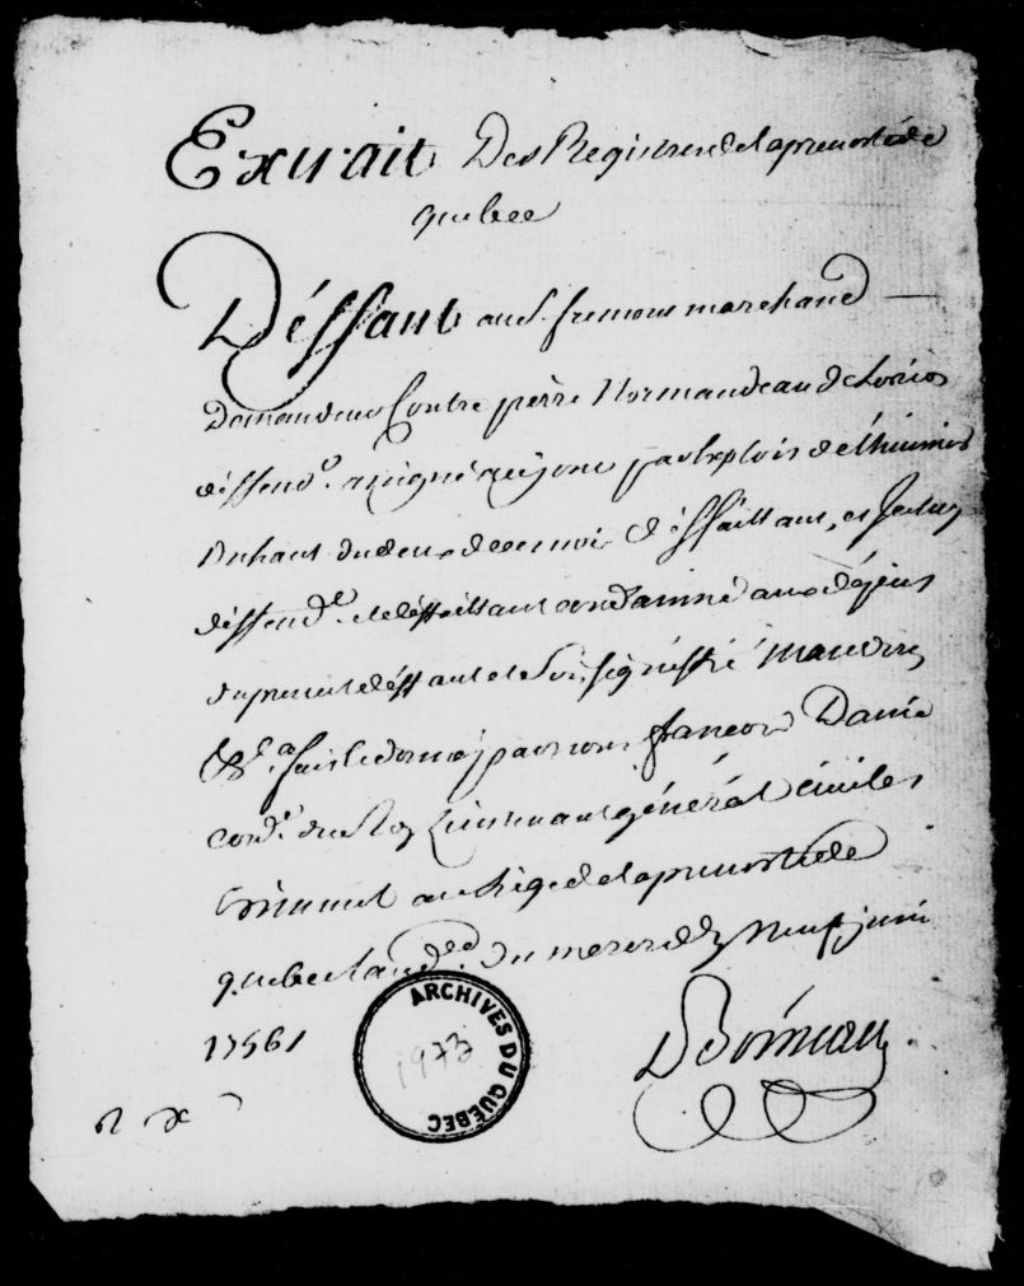 Extrait Des Registres de la prevosté de
quebec
Deffaut au Sr. fremont marchand
Demandeur Contre pierre Normandeau de Lorio
deffendr. assigné par Exploit de l'huissier
du deux de ce mois deffaillant, et
deffendr. le deffaillant condamné aux dépens
du present deffaut et Soit signiffié mandons
&a. fait et donné par nous françois Daine
Cons. du Roy Lieutenant général civil et
Criminel au Siege de la prevosté de
quebec Du mercredy neuf juin
1756
Boisseau
ARCHIVES DU QUEBEC
1973